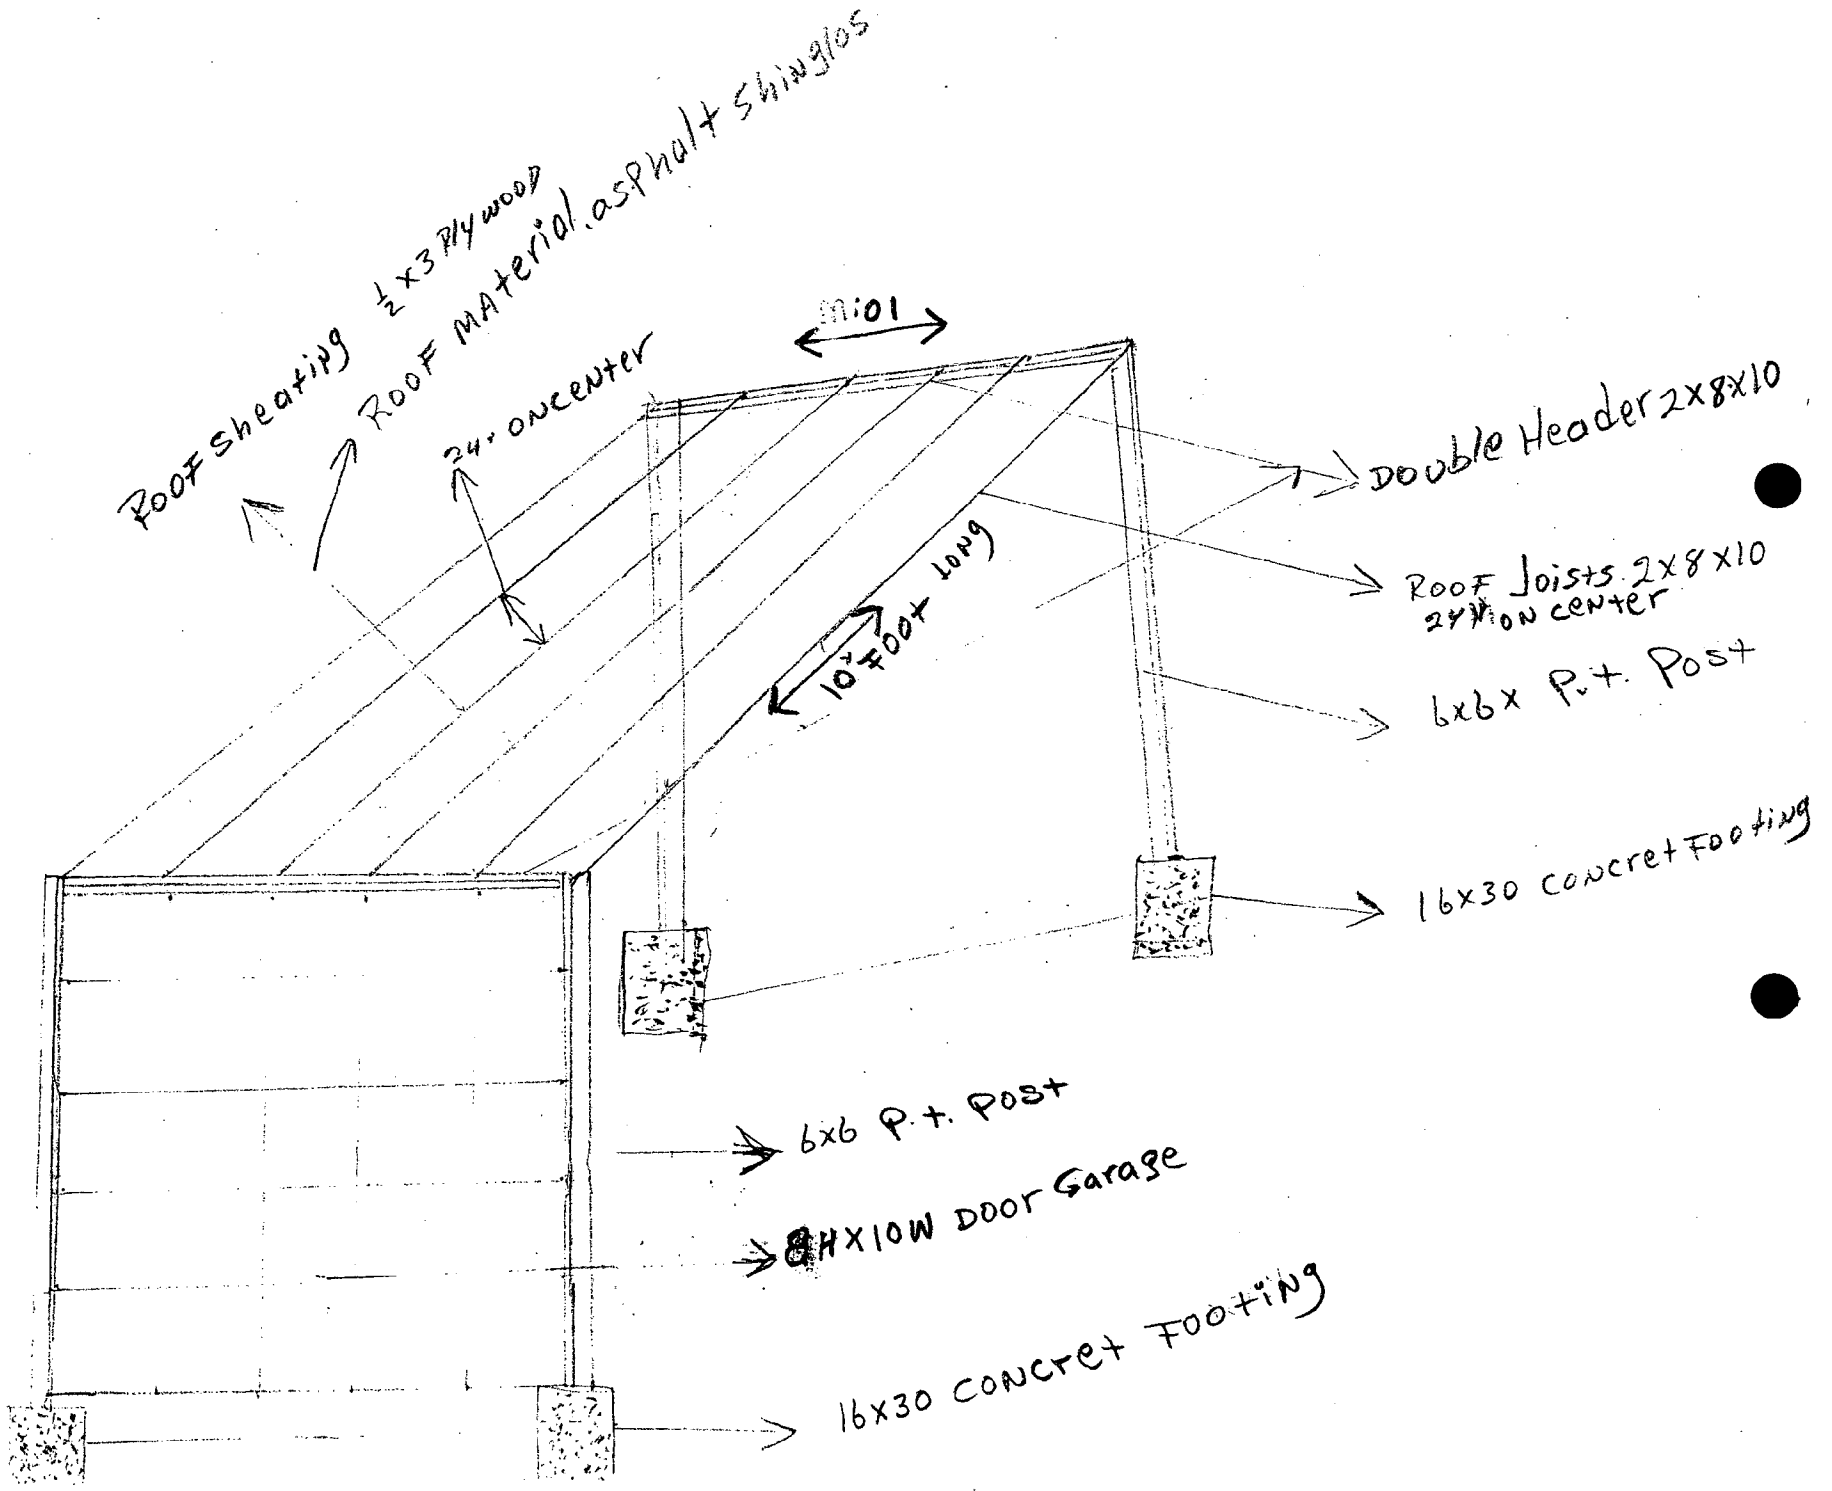 Roof Sheating ½ x3 Plywood
Roof Material. asphalt Shinglos
24" on center
Double Header 2x8x10
Roof Joists. 2x8x10
24" on center
10' Foot Long
6x6x P.t. Post
16x30 concret Footing
6x6 P.t. Post
8HX10W Door Garage
16x30 concret Footing